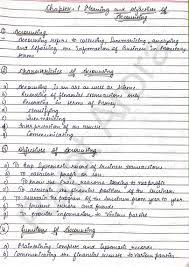 Chapter-1 Meaning and objectives of
Accounting
Accounting
Accounting refers to collecting, Summarizing, analyzing
and reporting the Information of Business in Monetary
terms
Characteristics of Accounting
Accounting is an art as well as Science
Recording of financial transactions only
Recording in terms of Money
Classifying
Summarizing
Interpretation of the results
Communicating
Objectives of Accounting
To keep Systematic record of business transactions
To calculate profit or loss
To know the exact reasons leading to net profit
To ascertain the financial position of the business
To ascertain the progress of the business from year to year
To provide information to Various parties
Functions of Accounting
Maintaining Complete and Systematic records
Communicating the financial results to Various parties